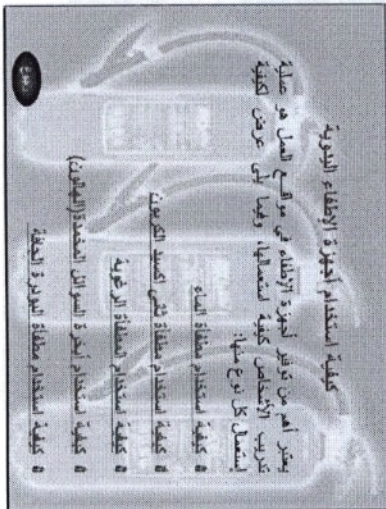 كيفية استخدام أجهزة الإطفاء اليدوية
يعتبر أهم من توفير أجهزة الإطفاء في مواقع العمل هو عملية
تدريب الأشخاص كيفية استعمالها، وفيما يلي عرض لكيفية
استعمال كل نوع منها:
كيفية استخدام مطفأة الماء
كيفية استخدام مطفأة ثاني اكسيد الكربون
كيفية استخدام المطفأة الرغوية
كيفية استخدام أبخرة السوائل المخمدة (الهالون)
كيفية استخدام مطفأة البودرة الجافة
رجوع